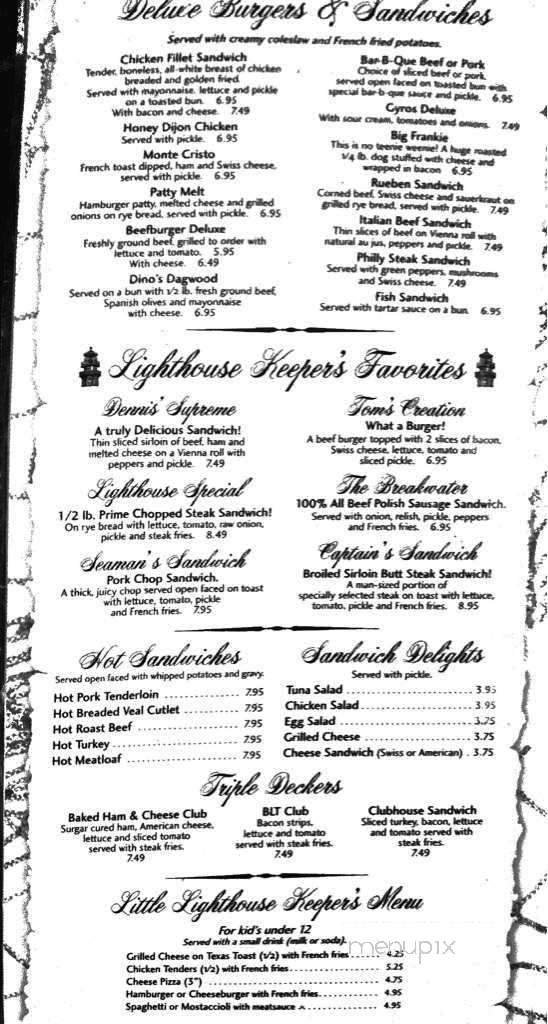 Deluxe Burgers & Sandwiches
Served with creamy coleslaw and French fried potatoes.
Chicken Fillet Sandwich
Tender, boneless, all-white breast of chicken
breaded and golden fried.
Served with mayonnaise, lettuce and pickle
on a toasted bun. 6.95
With bacon and cheese. 7.49
Honey Dijon Chicken
Served with pickle. 6.95
Monte Cristo
French toast dipped, ham and Swiss cheese,
served with pickle. 6.95
Patty Melt
Hamburger patty, melted cheese and grilled
onions on rye bread, served with pickle. 6.95
Beefburger Deluxe
Freshly ground beef, grilled to order with
lettuce and tomato. 5.95
With cheese. 6.49
Dino's Dagwood
Served on a bun with 1/2 lb. fresh ground beef,
Spanish olives and mayonnaise
with cheese. 6.95
Bar-B-Que Beef or Pork
Choice of sliced beef or pork,
served open faced on toasted bun with
special bar-b-que sauce and pickle. 6.95
Gyros Deluxe
With sour cream, tomatoes and onions. 7.49
Big Frankie
This is no teenie weenie! A huge roasted
1/4 lb. dog stuffed with cheese and
wrapped in bacon 6.95
Rueben Sandwich
Corned beef, Swiss cheese and sauerkraut on
grilled rye bread, served with pickle. 7.49
Italian Beef Sandwich
Thin slices of beef on Vienna roll with
natural au jus, peppers and pickle. 7.49
Philly Steak Sandwich
Served with green peppers, mushrooms
and Swiss cheese. 7.49
Fish Sandwich
Served with tartar sauce on a bun. 6.95
Lighthouse Keeper's Favorites
Dennis' Supreme
A truly Delicious Sandwich!
Thin sliced sirloin of beef, ham and
melted cheese on a Vienna roll with
peppers and pickle. 7.49
Lighthouse Special
1/2 lb. Prime Chopped Steak Sandwich!
On rye bread with lettuce, tomato, raw onion,
pickle and steak fries. 8.49
Seaman's Sandwich
Pork Chop Sandwich.
A thick, juicy chop served open faced on toast
with lettuce, tomato, pickle
and French fries. 7.95
Tom's Creation
What a Burger!
A beef burger topped with 2 slices of bacon,
Swiss cheese, lettuce, tomato and
sliced pickle. 6.95
The Breakwater
100% All Beef Polish Sausage Sandwich.
Served with onion, relish, pickle, peppers
and French fries. 6.95
Captain's Sandwich
Broiled Sirloin Butt Steak Sandwich!
A man-sized portion of
specially selected steak on toast with lettuce,
tomato, pickle and French fries. 8.95
Hot Sandwiches
Served open faced with whipped potatoes and gravy.
Hot Pork Tenderloin 7.95
Hot Breaded Veal Cutlet 7.95
Hot Roast Beef 7.95
Hot Turkey 7.95
Hot Meatloaf 7.95
Sandwich Delights
Served with pickle.
Tuna Salad 3.95
Chicken Salad 3.95
Egg Salad 3.75
Grilled Cheese 3.75
Cheese Sandwich (Swiss or American) . 3.75
Triple Deckers
Baked Ham & Cheese Club
Surgar cured ham, American cheese,
lettuce and sliced tomato
served with steak fries.
7.49
BLT Club
Bacon strips,
lettuce and tomato
served with steak fries.
7.49
Clubhouse Sandwich
Sliced turkey, bacon, lettuce
and tomato served with
steak fries.
7.49
Little Lighthouse Keeper's Menu
For kid's under 12
Served with a small drink (milk or soda).
menupix
Grilled Cheese on Texas Toast (1/2) with French fries 4.25
Chicken Tenders (1/2) with French fries 5.25
Cheese Pizza (3") 4.75
Hamburger or Cheeseburger with French fries 4.95
Spaghetti or Mostaccioli with meatsauce 4.95